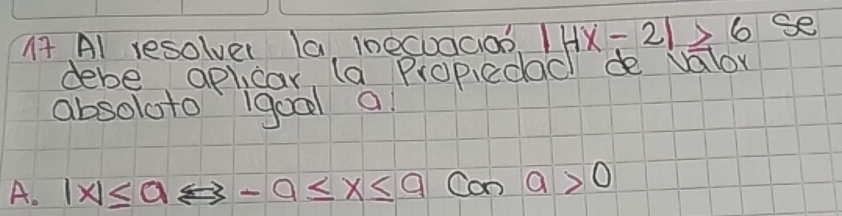 17 Al resolver la inecuación |4x - 2| ≥ 6 se
debe aplicar la Propiedad de Valor
absoluto igual a:
A. |x| ≤ a ⟺ - a ≤ x ≤ a Con a > 0